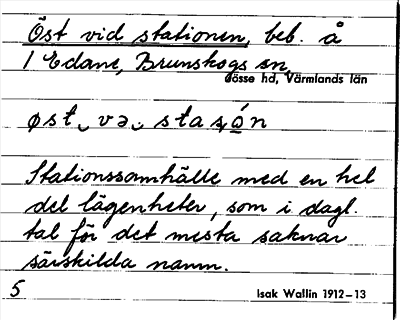 Öst vid stationen, beb. å
1 Edane, Brunskogs sn,
Jösse hd, Värmlands län
øst‿və‿stasǫ́n
Stationssamhälle med en hel
del lägenheter, som i dagl.
tal för det mesta saknar
särskilda namn.
5
Isak Wallin 1912–13